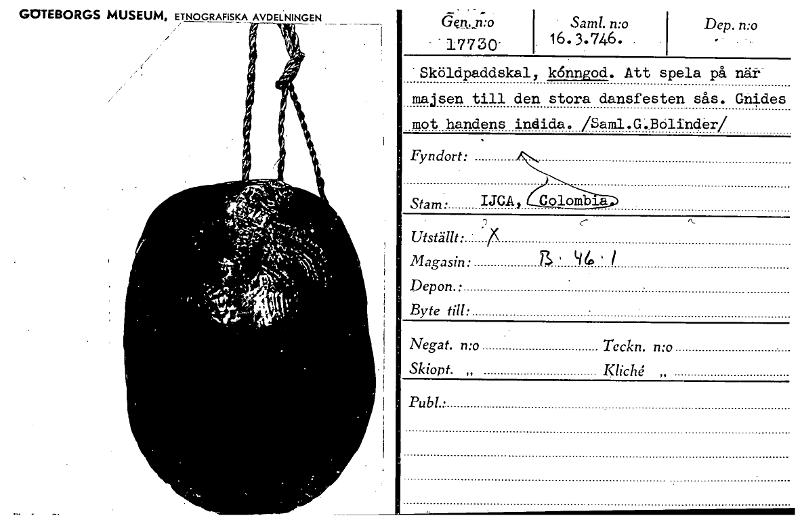 GÖTEBORGS MUSEUM, ETNOGRAFISKA AVDELNINGEN
Gen. n:o Saml. n:o Dep. n:o
17730 16.3.746.
Sköldpaddskal, kónngod. Att spela på när
majsen till den stora dansfesten sås. Gnides
mot handens indida. /Saml.G.Bolinder/
Fyndort:
Stam: IJCA, Colombia.
Utställt: X
Magasin: B. 46. 1
Depon.:
Byte till:
Negat. n:o Teckn. n:o
Skiopt. „ Kliché „
Publ.: